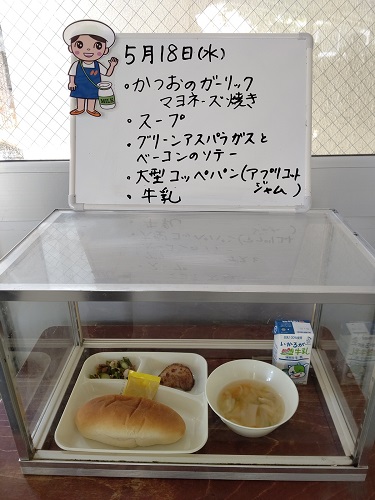 5月18日(水)
・かつおのガーリック
マヨネーズ焼き
・スープ
・グリーンアスパラガスと
ベーコンのソテー
・大型コッペパン(アプリコット
ジャム)
・牛乳
MILK
牛乳